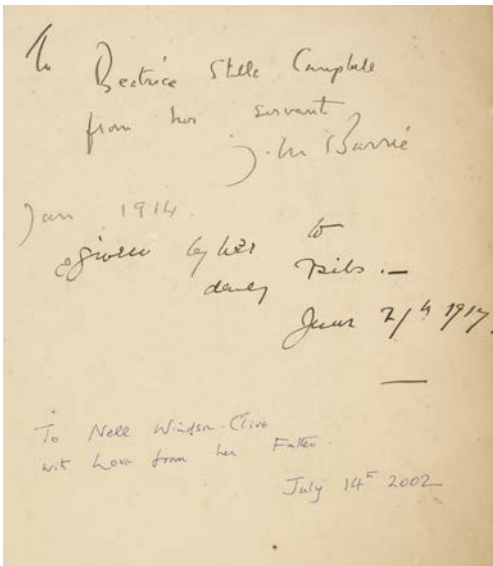 To Beatrice Stella Campbell
from her servant
J. M Barrie
Jan 1914.
& given by her to
Pibs. —
June 7th 1917.
To Nell Windsor-Clive
with Love from her Father.
July 14th 2002